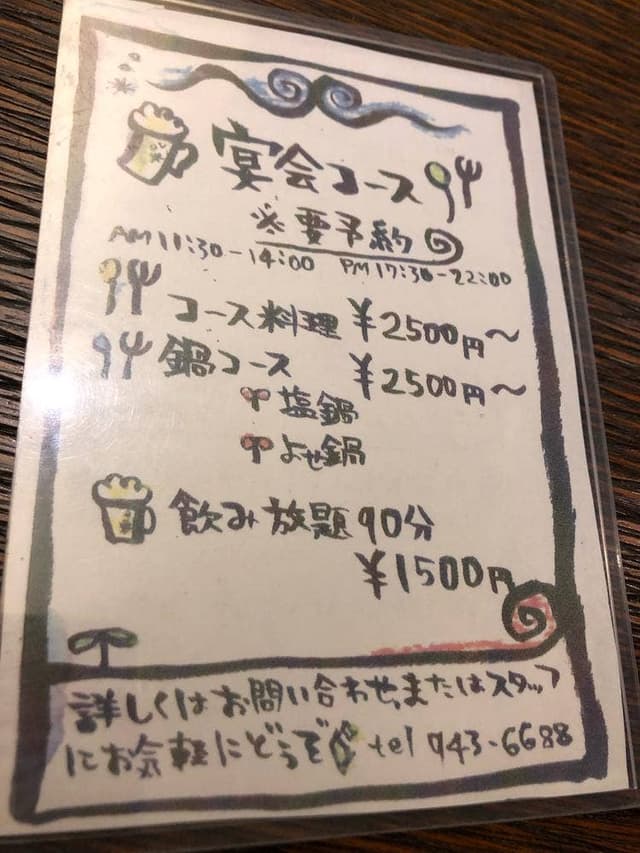 宴会コース
※要予約
AM11:30-14:00 PM17:30-22:00
コース料理 ¥2500円〜
鍋コース ¥2500円〜
塩鍋
よせ鍋
飲み放題90分
¥1500円
詳しくはお問い合わせ、またはスタッフ
にお気軽にどうぞ tel 943-6688